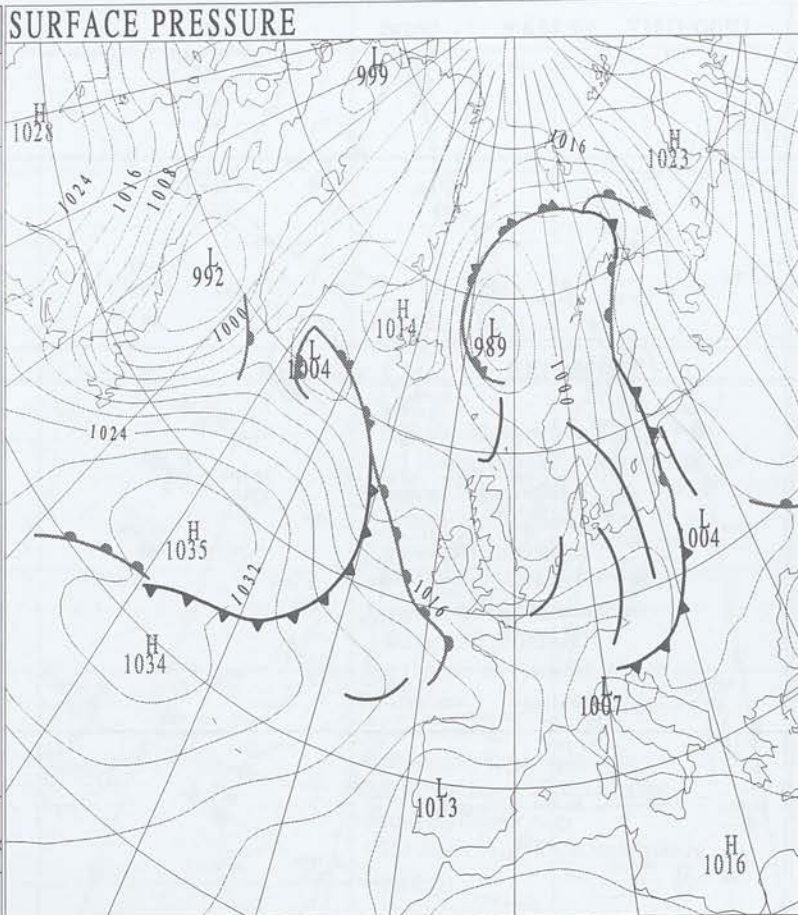 SURFACE PRESSURE
L
999
H
1028
1016
H
1023
1024
1016
1008
L
992
H
1014
1000
L
989
L
1004
1000
1024
H
1035
L
1004
1032
1016
H
1034
L
1007
L
1013
H
1016